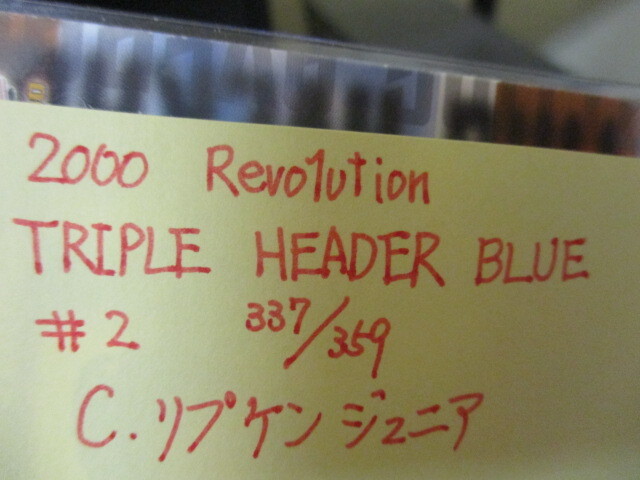 2000 Revolution
TRIPLE HEADER BLUE
#2 337/359
C.リプケンジュニア